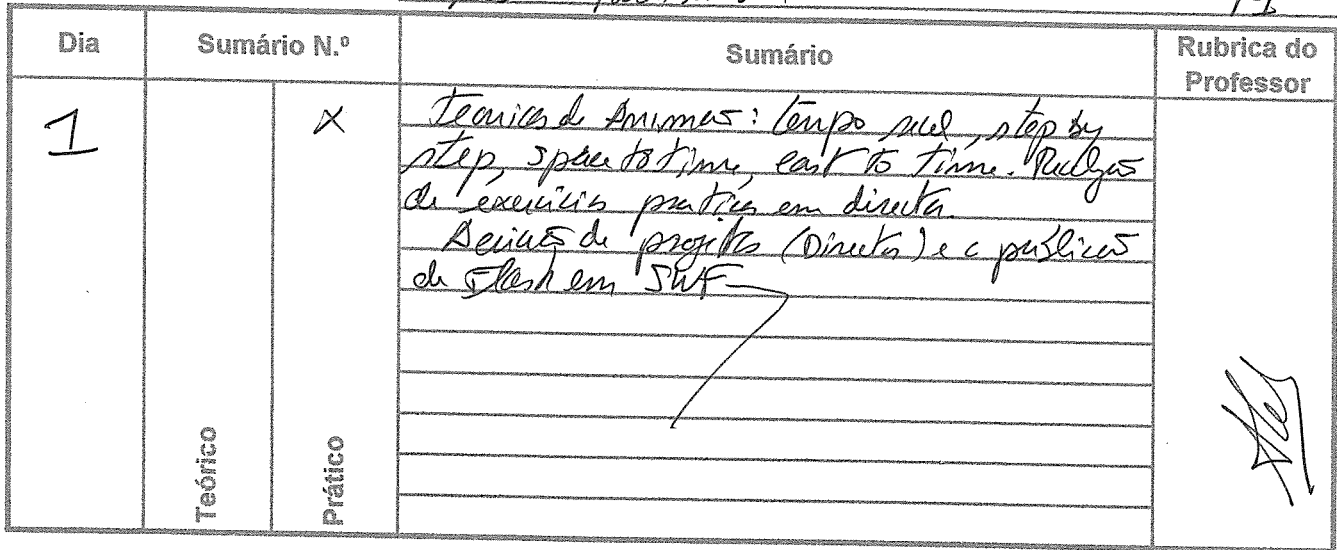 Dia Sumário N.º Sumário Rubrica do Professor
1 X
Tecnicas de Animação: tempo real, step by
step, space to time, cast to time. Realização
de exercícios praticos em director.
de projectos (Director) e a publicação
de Flash em SWF
Teórico Prático